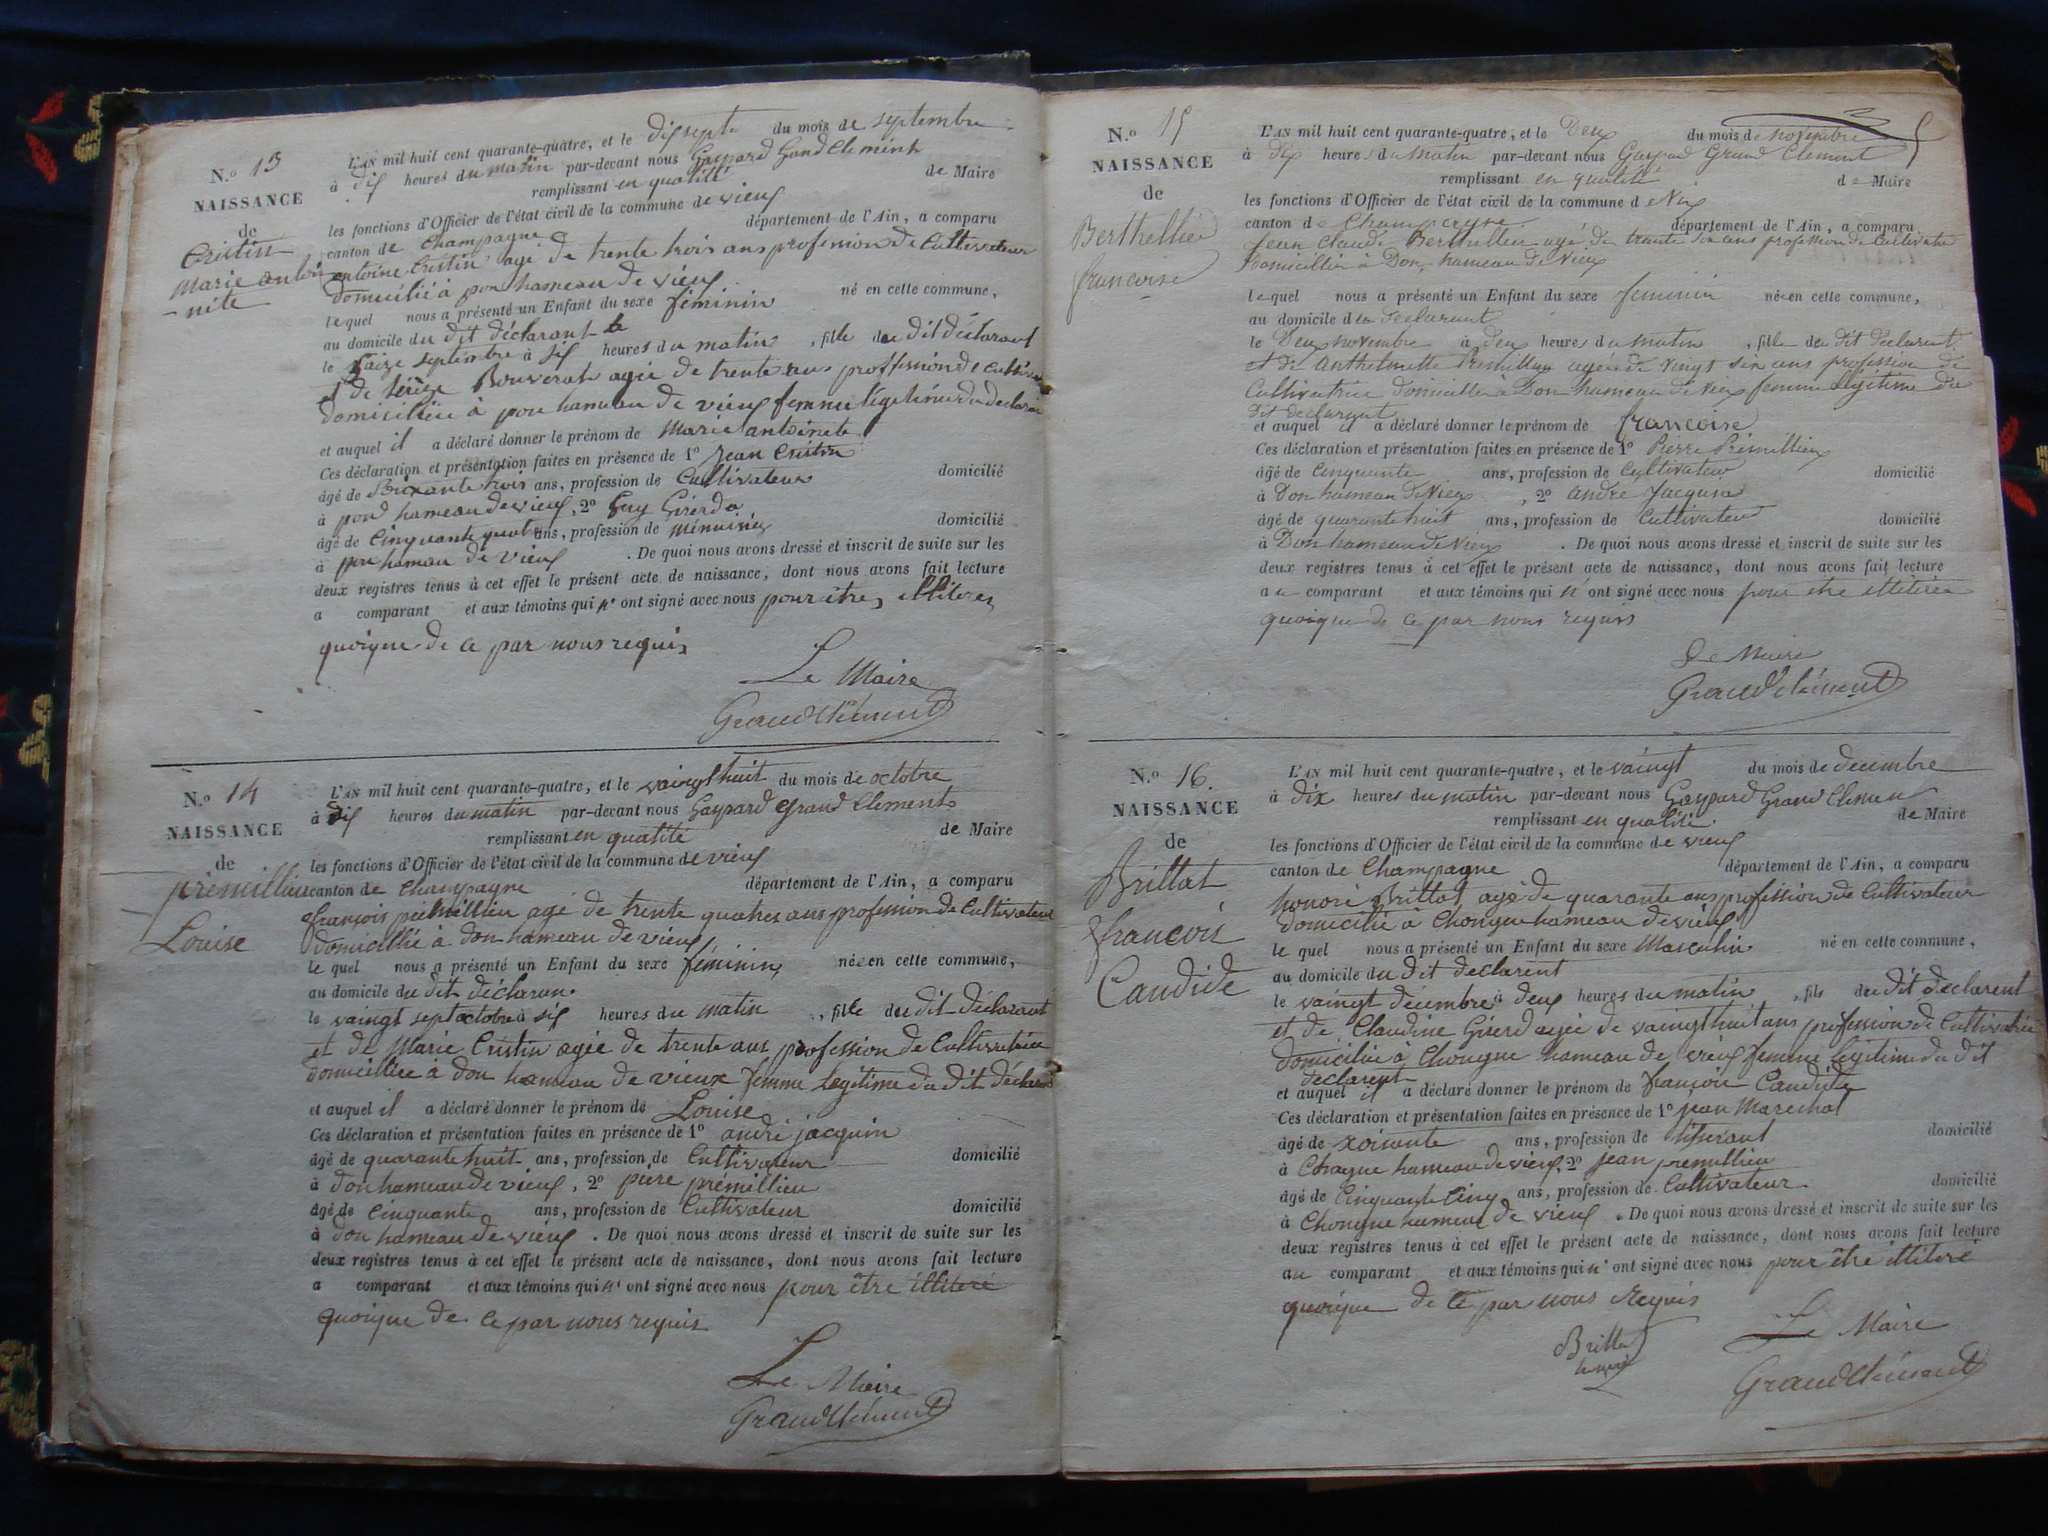 N.º 13
NAISSANCE
de
Cristin
marie antoi
-nete
L'AN mil huit cent quarante-quatre, et le dix sept du mois de septembre
à dix heures du matin par-devant nous Gaspard Grand Clement
remplissant en qualité de Maire
les fonctions d'Officier de l'état civil de la commune de vieux
canton de Champagne département de l'Ain, a comparu
antoine Cristin agé de trente trois ans profession de Cultivateur
domicilié à pon hameau de vieux
le quel nous a présenté un Enfant du sexe féminin né en cette commune,
au domicile du dit déclarant
le saize septembre à six heures du matin, fille du dit déclarant
et de térèze Bouverat agée de trente ans proffession de Cultiva
domiciliée à pon hameau de vieux femme légitime du declaran
et auquel il a déclaré donner le prénom de marie antoinete
Ces déclaration et présentation faites en présence de 1º jean Cristin
âgé de soixante trois ans, profession de Cultivateur domicilié
à pon hameau de vieux, 2º Guy Girerd
âgé de Cinquante quatre ans, profession de ménuisier domicilié
à pon hameau de vieux. De quoi nous avons dressé et inscrit de suite sur les
deux registres tenus à cet effet le présent acte de naissance, dont nous avons fait lecture
a comparant et aux témoins qui n' ont signé avec nous pour êtres illiteres
quoique de ce par nous requis
Le Maire
Grandclément
N.º 14
NAISSANCE
de
prémillieu
Louise
L'AN mil huit cent quarante-quatre, et le vaingt huit du mois de octobre
à dix heures du matin par-devant nous Gaspard Grand Clement
remplissant en qualité de Maire
les fonctions d'Officier de l'état civil de la commune de vieux
canton de Champagne département de l'Ain, a comparu
françois prémillieu agé de trente quatres ans profession de Cultivateur
domicillié à don hameau de vieux
le quel nous a présenté un Enfant du sexe féminin née en cette commune,
au domicile du dit déclaran
le vaingt sept octobre à six heures du matin, fille du dit déclarant
et de Marie Cristin agée de trente ans profession de Cultivatrice
domicilliée à don hameau de vieux femme legitime du dit déclarant
et auquel il a déclaré donner le prénom de Louise
Ces déclaration et présentation faites en présence de 1º andré jacquin
âgé de quarante huit ans, profession de Cultivateur domicilié
à don hameau de vieux, 2º piere prémillieu
âgé de Cinquante ans, profession de Cultivateur domicilié
à don hameau de vieux. De quoi nous avons dressé et inscrit de suite sur les
deux registres tenus à cet effet le présent acte de naissance, dont nous avons fait lecture
a comparant et aux témoins qui n' ont signé avec nous pour être illiteré
quoique de ce par nous requis
Le Maire
Grandclément
N.º 15
NAISSANCE
de
Berthellier
francoise
L'AN mil huit cent quarante-quatre, et le Deux du mois de Novembre
à dix heures du Matin par-devant nous Gaspard Grand Clement
remplissant en qualité de Maire
les fonctions d'Officier de l'état civil de la commune de
canton de Champagne département de l'Ain, a comparu
Jean Claude Berthellier agé de trante ans profession de Cultivateur
domicillié à Don, hameau de Vieux
le quel nous a présenté un Enfant du sexe feminin née en cette commune,
au domicile du declarant
le Deux novembre à deux heures du matin, fille du dit declarent
et de Anthelmette agée de Vingt six ans profession de
Cultivatrice domicillée à Don hameau de Vieux femme légitime du
dit declarant
et auquel il a déclaré donner le prénom de francoise
Ces déclaration et présentation faites en présence de 1º Pierre Prémillieu
âgé de Cinquante ans, profession de Cultivateur domicilié
à Don hameau de Vieux, 2º andré Jacquin
âgé de quarante huit ans, profession de Cultivateur domicilié
à Don hameau de Vieux. De quoi nous avons dressé et inscrit de suite sur les
deux registres tenus à cet effet le présent acte de naissance, dont nous avons fait lecture
au comparant et aux témoins qui n' ont signé avec nous pour être illiterés
quoique de ce par nous requis
Le Maire
Grandclément
N.º 16.
NAISSANCE
de
Brillat
francois
Candide
L'AN mil huit cent quarante-quatre, et le vaingt du mois de decembre
à dix heures du matin par-devant nous Gaspard Grand Clemen
remplissant en qualité de Maire
les fonctions d'Officier de l'état civil de la commune de vieux
canton de Champagne département de l'Ain, a comparu
honoré Brillat, agé de quarante ans profession de Cultivateur
domicilié à Chongne hameau de vieux
le quel nous a présenté un Enfant du sexe Masculin né en cette commune,
au domicile du dit declarent
le vaingt décembre à deux heures du matin, fils du dit declarent
et de Claudine Girerd agée de vaingt huit ans profession de Cultivatrice
domiciliée à Chongne hameau de vieux femme legitime du dit
declarent
et auquel il a déclaré donner le prénom de francois Candide
Ces déclaration et présentation faites en présence de 1º jean Marechal
âgé de soixante ans, profession de domicilié
à Chogne hameau de vieux, 2º jean premillieu
âgé de Cinquante Cinq ans, profession de Cultivateur domicilié
à Chongne hameau de vieux. De quoi nous avons dressé et inscrit de suite sur les
deux registres tenus à cet effet le présent acte de naissance, dont nous avons fait lecture
au comparant et aux témoins qui n' ont signé avec nous pour être illiteré
quoique de ce par nous requis
Brillat
Le Maire
Grandclément